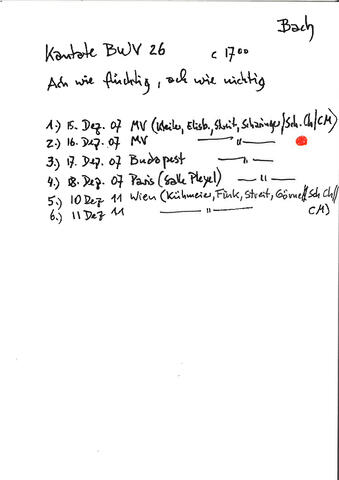 Bach
Kantate BWV 26 c 1700
Ach wie flüchtig, ach wie nichtig
1.) 15. Dez. 07 MV (Keiler, Elisb., Streit, Scharinger/Sch. Ch/CM)
2.) 16. Dez. 07 MV — " —
3.) 17. Dez. 07 Budapest — " —
4.) 18. Dez. 07 Paris (Salle Pleyel) — " —
5.) 10 Dez 11 Wien (Kühmeier, Fink, Streit, Görne//Sch Ch//
6.) 11 Dez 11 — " — CM)